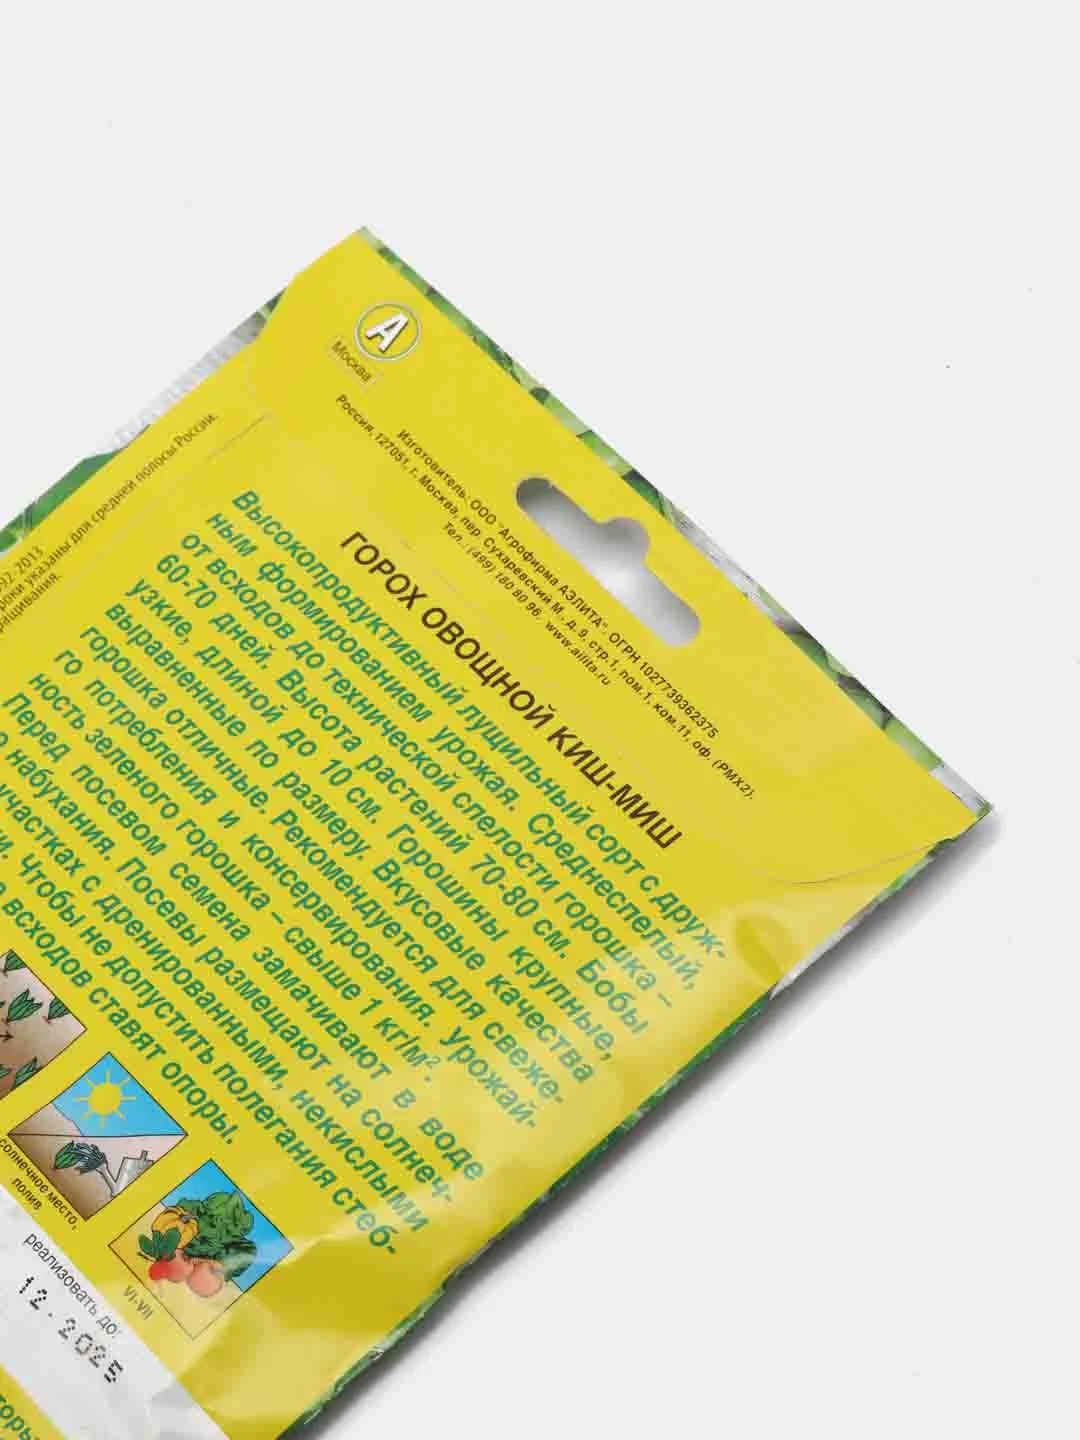 А
Москва
Изготовитель: ООО "Агрофирма АЭЛИТА". ОГРН 1027739362375
Россия, 127051, г. Москва, пер. Сухаревский М., д. 9, стр.1, пом.1, ком.11, оф. (РМХ2).
Тел.: (499) 180 80 96. www.ailita.ru
ГОРОХ ОВОЩНОЙ КИШ-МИШ
Высокопродуктивный лущильный сорт с друж-
ным формированием урожая. Среднеспелый,
от всходов до технической спелости горошка –
60-70 дней. Высота растений 70-80 см. Бобы
узкие, длиной до 10 см. Горошины крупные,
выравненные по размеру. Вкусовые качества
горошка отличные. Рекомендуется для свеже-
го потребления и консервирования. Урожай-
ность зеленого горошка – свыше 1 кг/м².
Перед посевом семена замачивают в воде
набухания. Посевы размещают на солнеч-
участках с дренированными, некислыми
Чтобы не допустить полегания стеб-
всходов ставят опоры.
2013
указаны для средней полосы России.
солнечное место,
полив
VI-VII
реализовать до:
12.2025